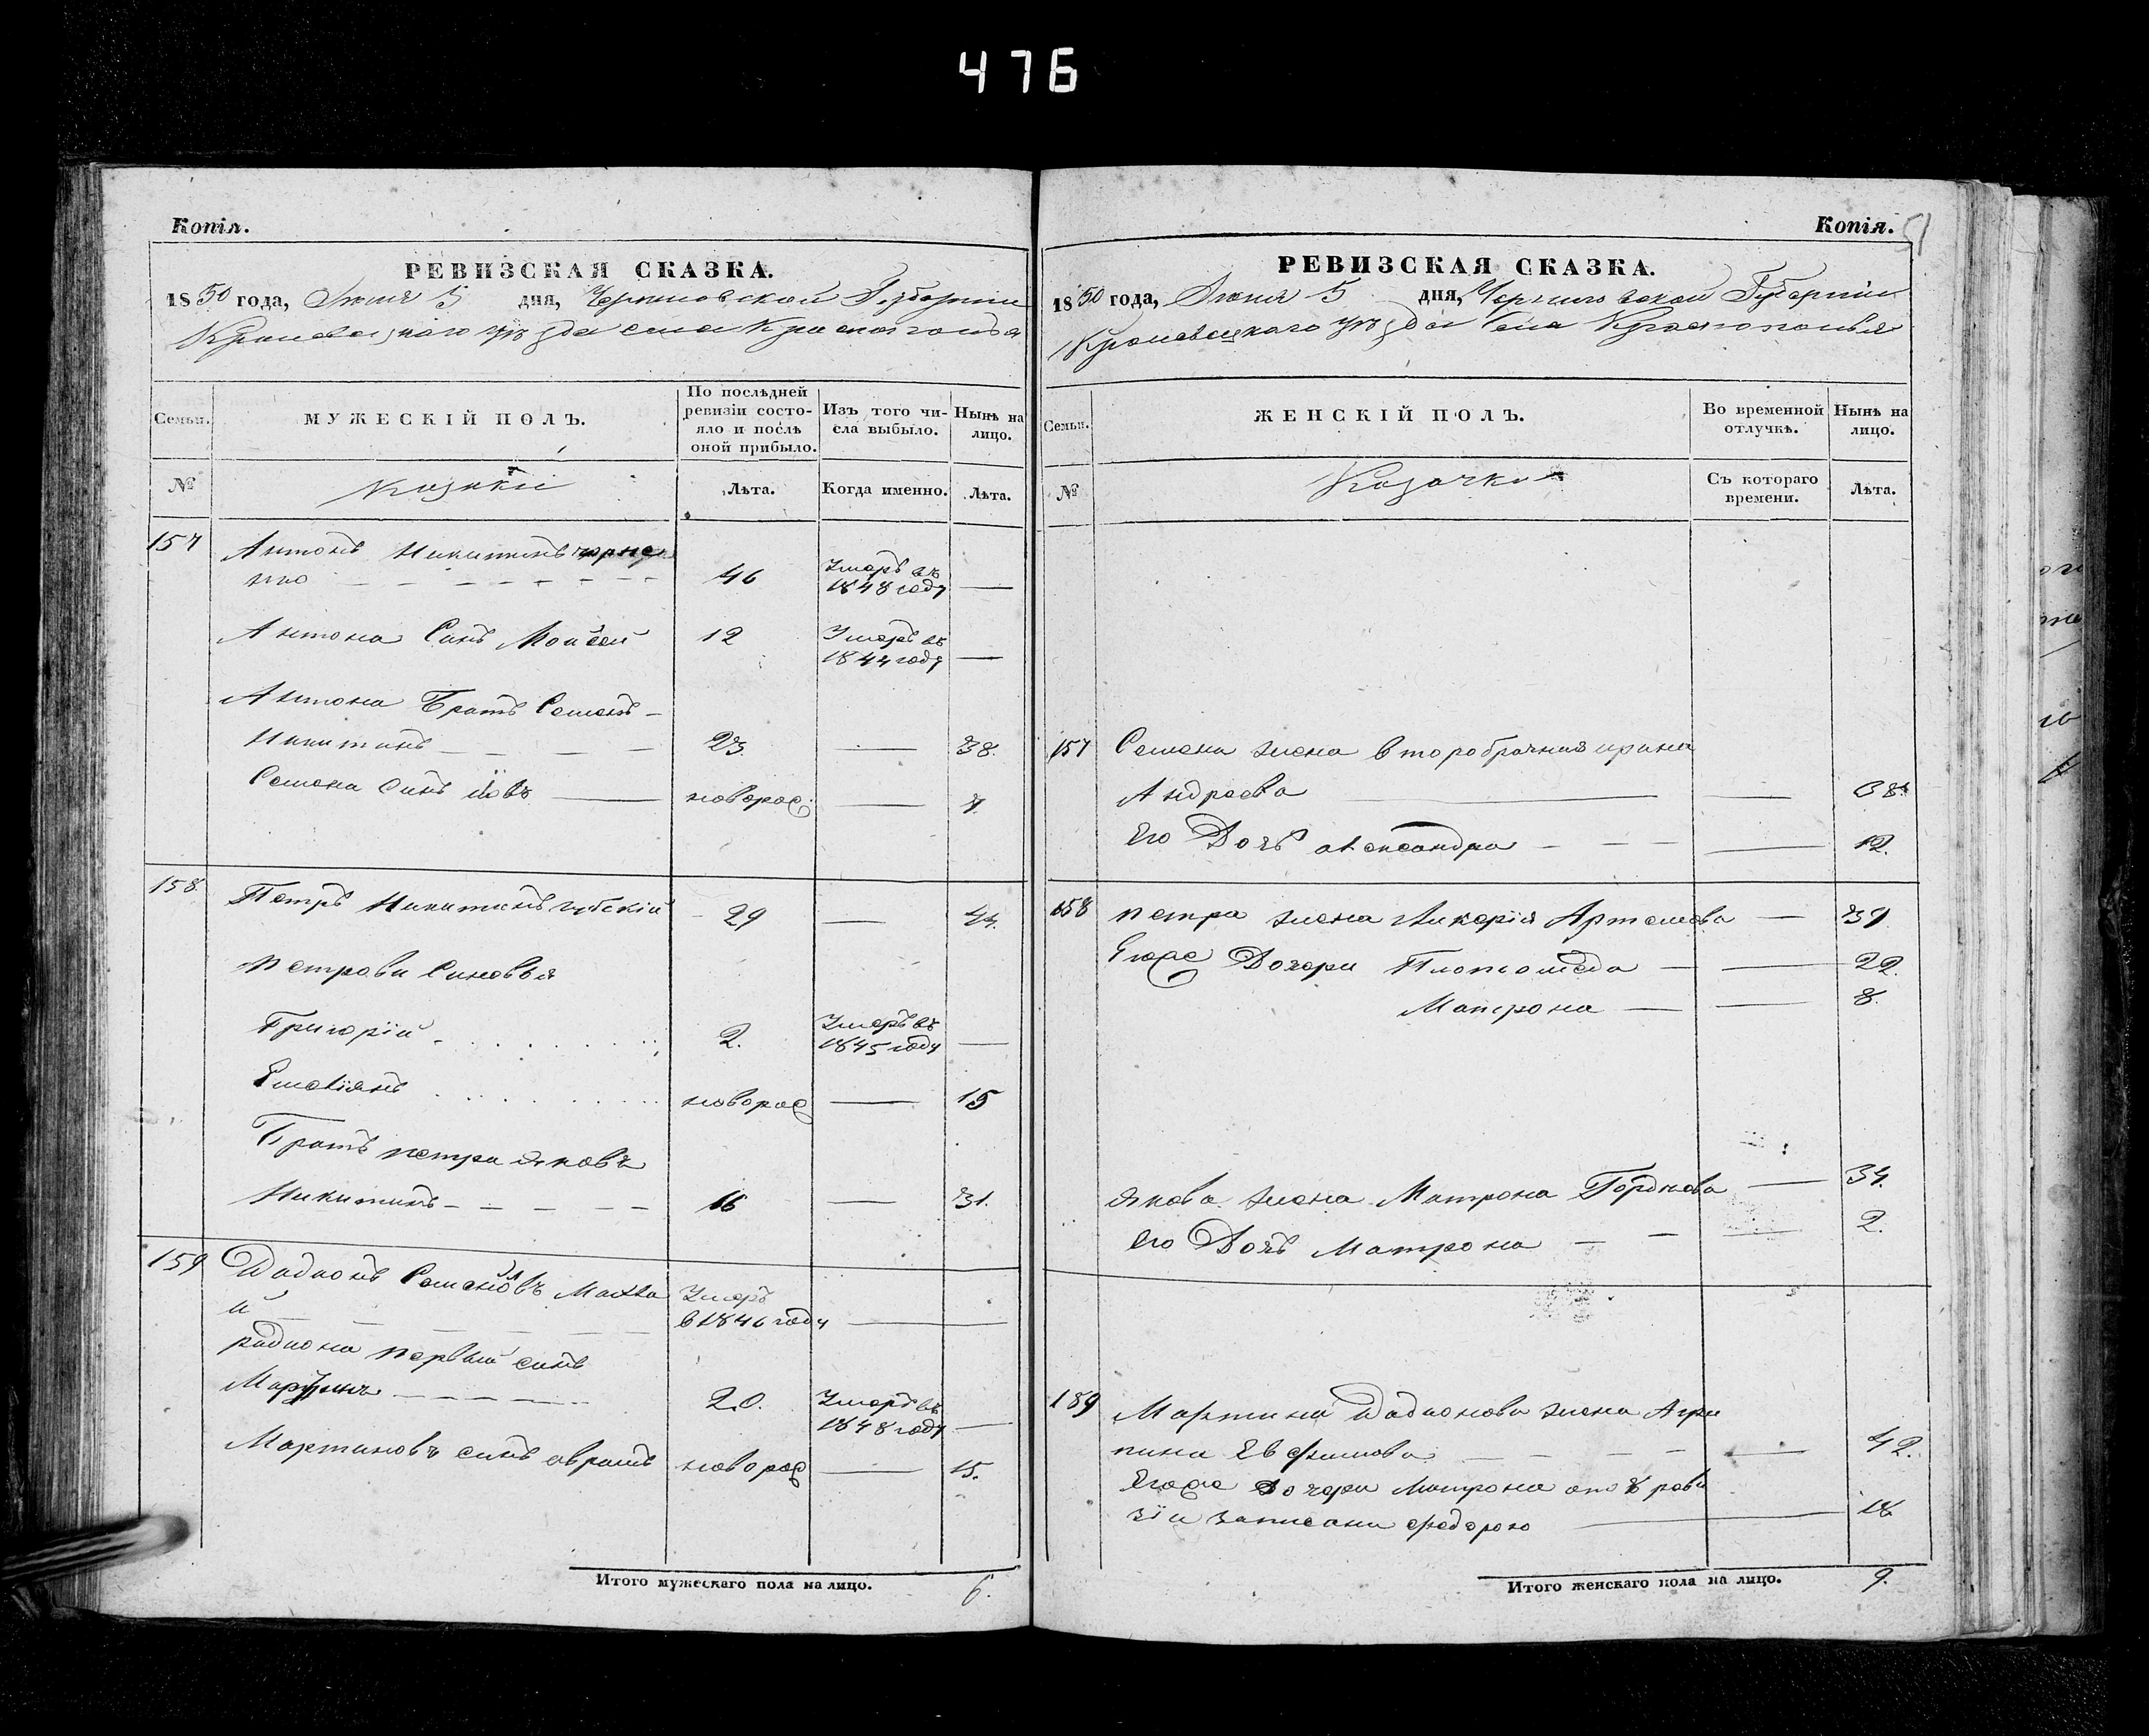 476
Копія.
РЕВИЗСКАЯ СКАЗКА.
1850 года, Июня 5 дня, Черниговской Губерніи
Кролевецкаго уѣзда села Краснополья
Семьи.
МУЖЕСКІЙ ПОЛЪ.
По послѣдней ревизіи состояло и послѣ оной прибыло.
Изъ того числа выбыло.
Нынѣ на лицо.
№
Козаки
Лѣта.
Когда именно.
Лѣта.
157 Антонъ Никитинъ
46 Умеръ въ 1848 году —
Антона Синъ Мойсей 12 Умеръ въ 1844 году —
Антона Братъ Семенъ
Никитинъ 23 — 38.
Семена Синъ Іовъ — новорож: — 7.
158. Петръ Никитинъ 29 — 44.
Петрови Синовья
Григорій 2. Умеръ въ 1845 году —
Емеліянъ новорож — 15
Братъ петра яковъ
Никитинъ 16 — 31.
159 Семеновъ
Умеръ в 1846 году —
радиона первый синъ
Мартинъ 20. Умеръ въ 1848 году —
Мартиновъ синъ аврамъ новорож — 15.
Итого мужескаго пола на лицо. 6.
Копія.
51
РЕВИЗСКАЯ СКАЗКА.
1850 года, Июня 5 дня, Черниговской Губерніи
Кролевецкаго уѣзда Села Краснополья
Семьи.
ЖЕНСКІЙ ПОЛЪ.
Во временной отлучкѣ.
Нынѣ на лицо.
№
Козачки
Съ котораго времени.
Лѣта.
157 Семена жена второбрачная ирина
Андреева — — 38.
Его Дочь александра — 12.
158 петра жена Гликерія Артемова — 39
Егоже Дочери — 22.
Матрона — — 8.
якова жена Матрона Гордеева — 34.
Его Дочь Матрона — 2.
159 Мартина Радионова жена Агри
пина Евфимова — 42.
Егоже Дочери Матрона по 8 реви
зіи записана федорою — 18
Итого женскаго пола на лицо. 9.